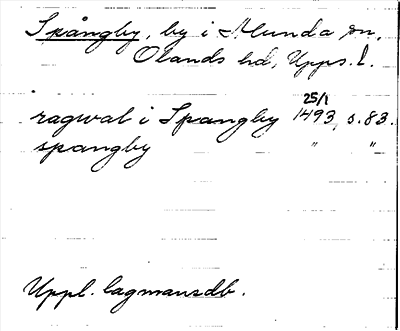 Spångby, by i Alunda sn,
Olands hd, Upps. l.
25/1
ragwal i Spangby 1493, s. 83.
spangby " "
Uppl. lagmansdb.